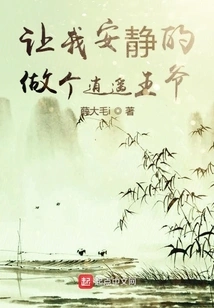 让我安静的
做个逍遥王爷
薛大毛i 著
起点中文网